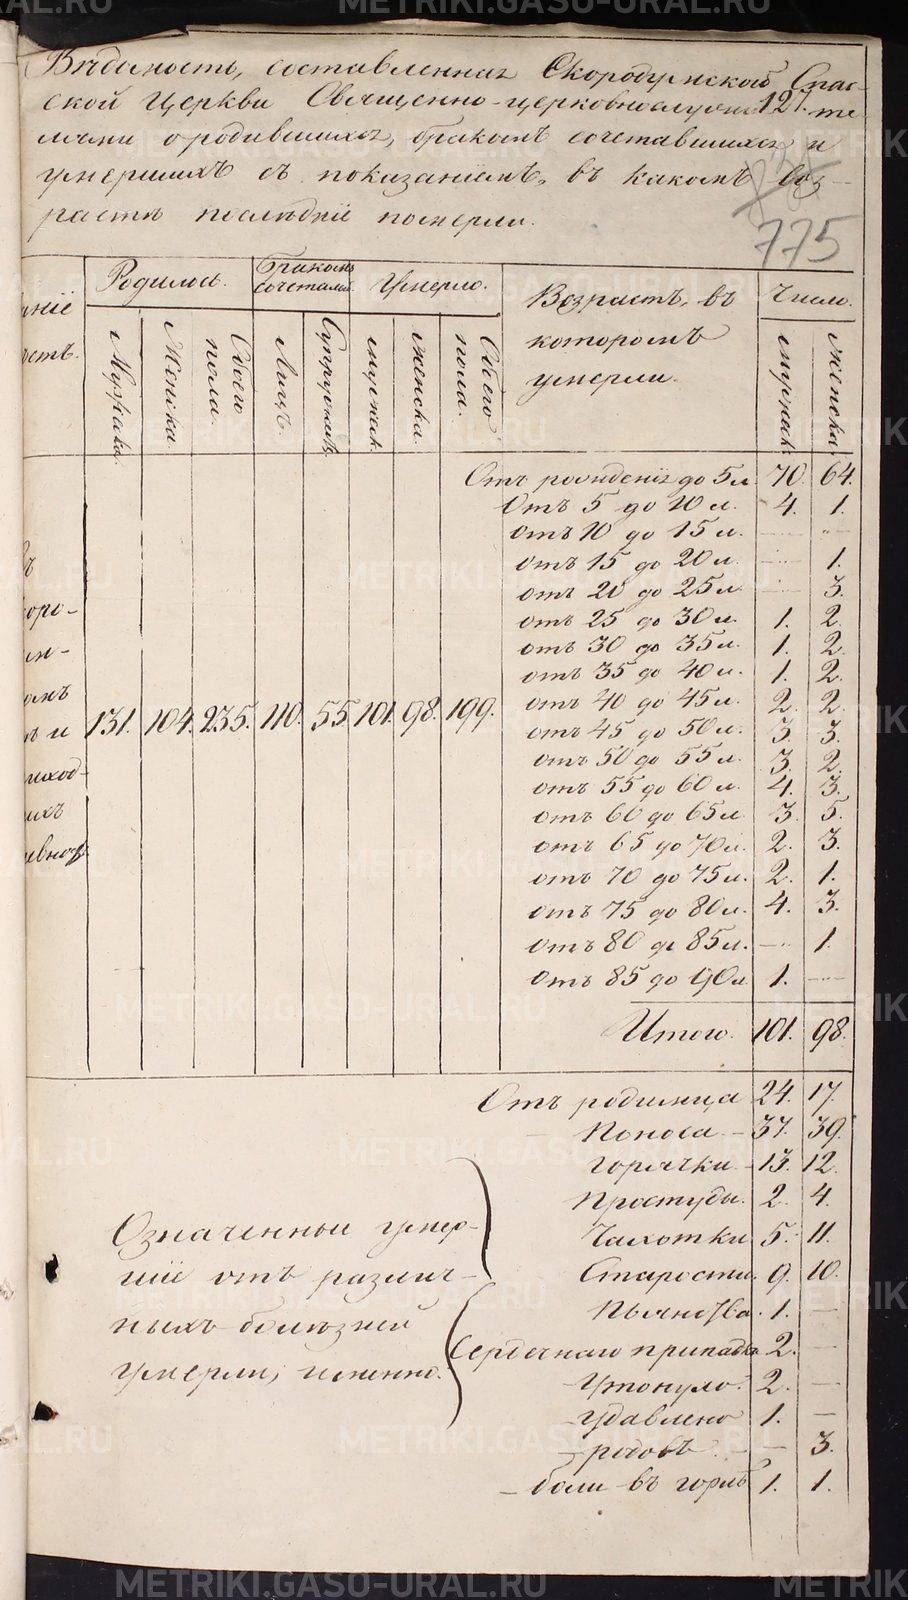 Вѣдомость, составленная Скородумской Спас-
ской Церкви Священно-церковнослужи 121. те
лями о родившихся, бракомъ сочетавшихся и
умершихъ съ показанiемъ, въ какомъ воз-
растѣ послѣднiе померли.
775
Родилось. Бракомъ сочеталось. Умерло. Возрастъ, въ которомъ умерли. Число.
Мужска. Женска. Обоего пола. Лицъ. Супружествъ. мужск. женска. Обоего пола. мужск. женска.
Отъ рожденiя до 5 л. 70. 64.
Отъ 5 до 10 л. 4. 1.
отъ 10 до 15 л. — —
отъ 15 до 20 л. — 1.
отъ 20 до 25 л. — 3.
отъ 25 до 30 л. 1. 2.
отъ 30 до 35 л. 1. 2.
отъ 35 до 40 л. 1. 2.
отъ 40 до 45 л. 2. 2.
131. 104. 235. 110. 55. 101. 98. 199.
отъ 45 до 50 л. 3. 3.
отъ 50 до 55 л. 3. 2.
отъ 55 до 60 л. 4. 3.
отъ 60 до 65 л. 3. 5.
отъ 65 до 70 л. 2. 3.
отъ 70 до 75 л. 2. 1.
отъ 75 до 80 л. 4. 3.
отъ 80 до 85 л. — 1.
отъ 85 до 90 л. 1. —
Итого. 101. 98.
Означенные умер-
шiе отъ различ-
ныхъ болѣзней
умерли, именно:
Отъ родимца 24. 17.
Поноса – 37. 39.
Горячки – 13. 12.
Простуды. 2. 4.
Чахотки 5. 11.
Старости. 9. 10.
Пьянства. 1. —
Сердечнаго припадка 2. —
Утонуло. 2. —
удавлено 1. —
родовъ. — 3.
– боли въ горлѣ 1. 1.
METRIKI.GASO-URAL.RU